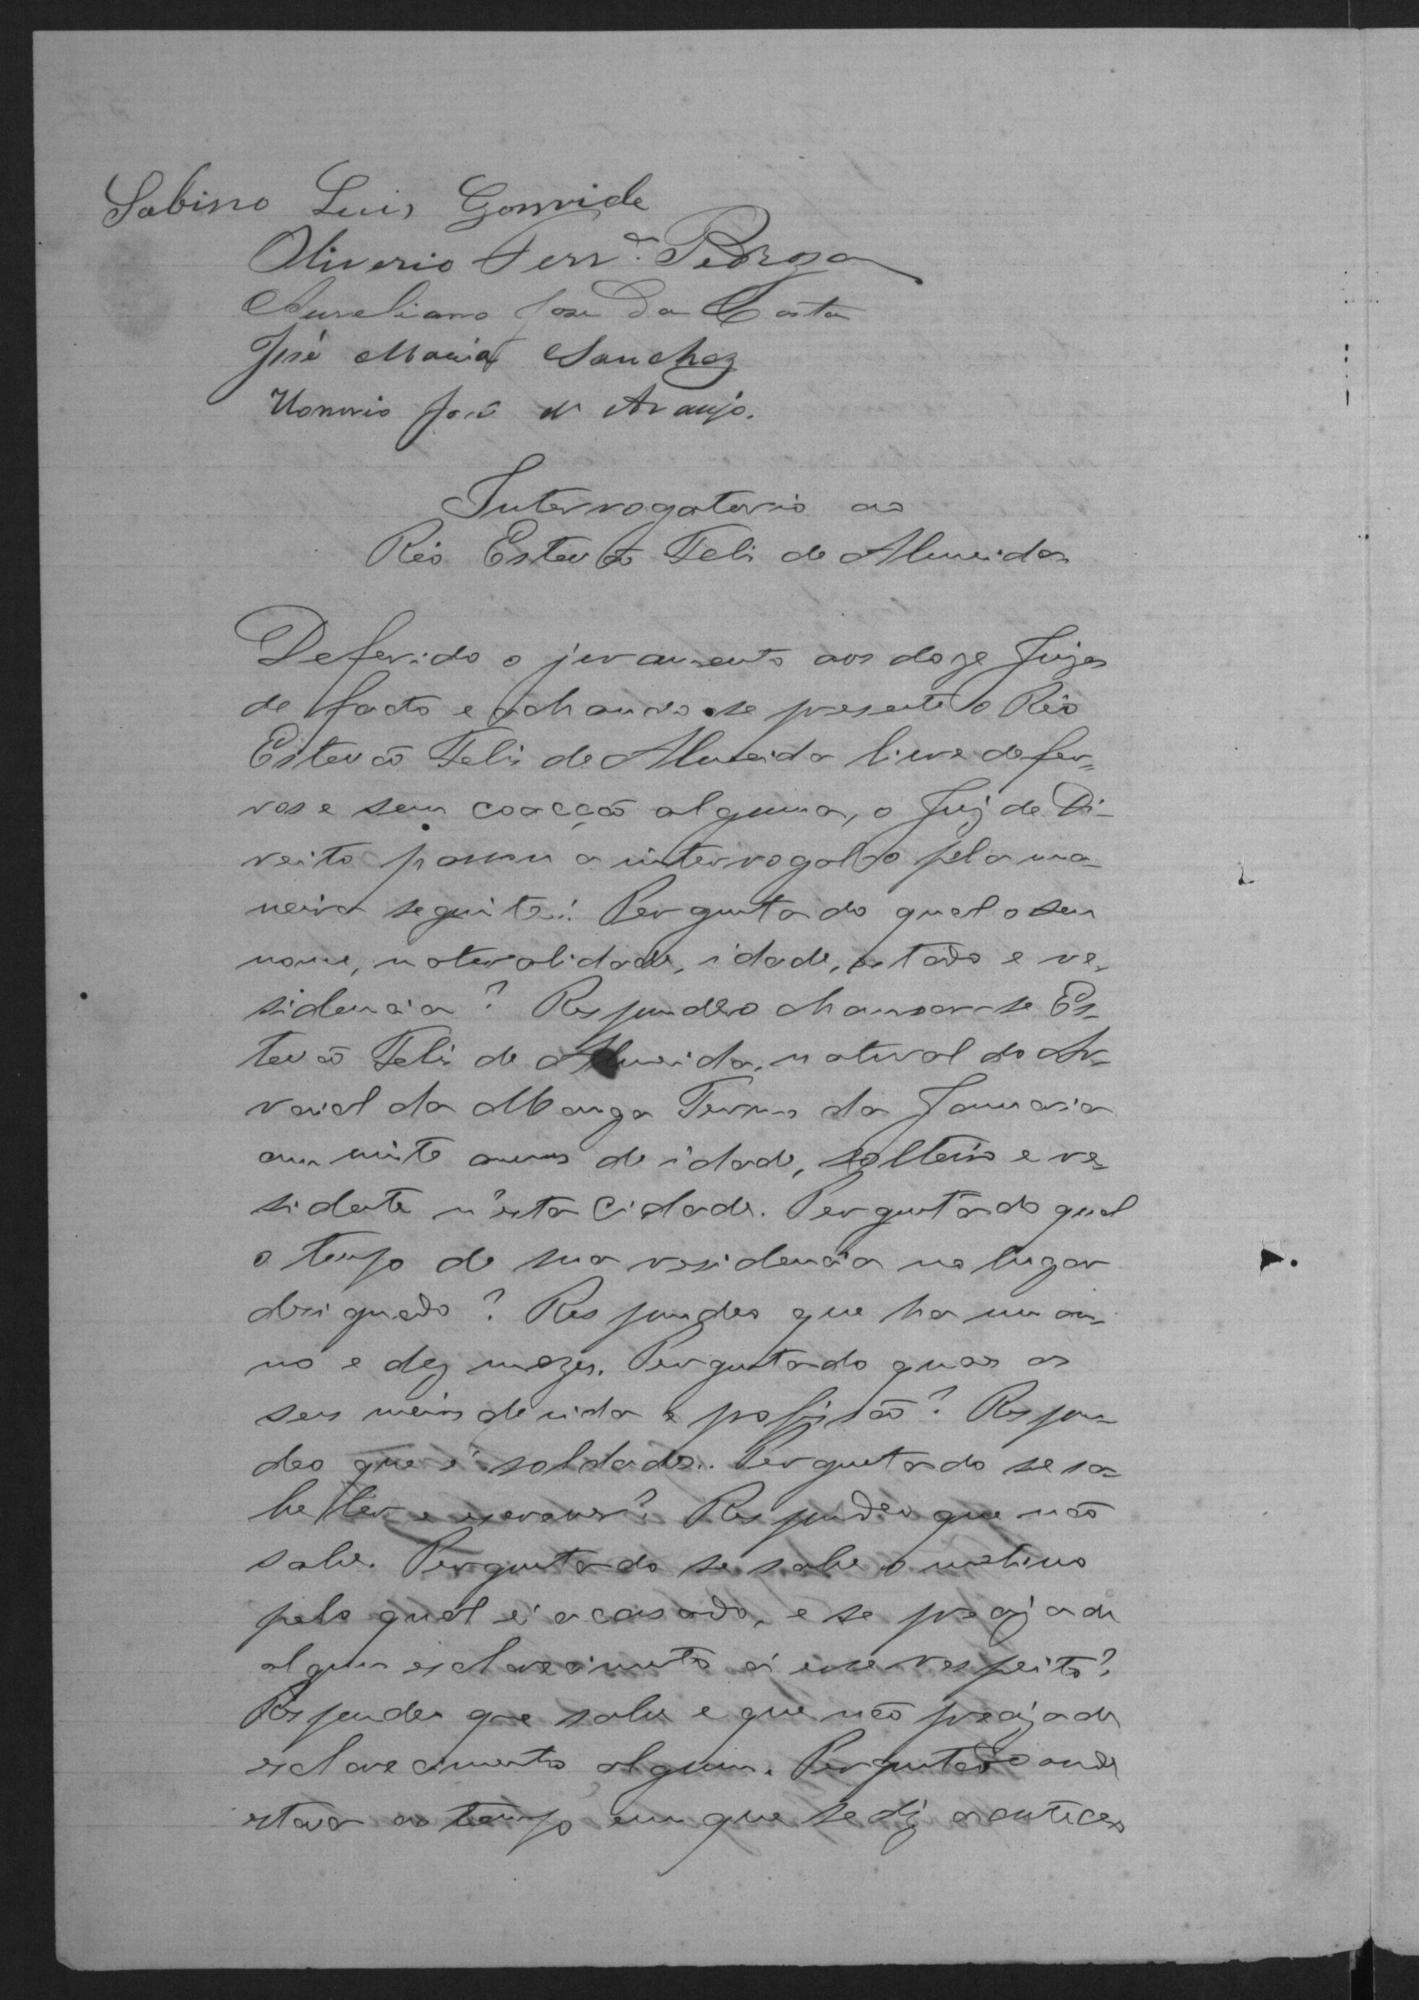 Sabino Luis
Oliverio Ferr.ª Pedroza
Aureliano José Da Costa
José Maria Sanchez
Honorio José de Araujo.
Interrogatorio ao
Réo Estevão Feliz de Almeida
Deferido o juramento aos doze Juizes
de facto e achando-se presente o Réo
Estevão Feliz de Almeida livre de fer-
ros e sem coacção alguma, o Juiz de Di-
reito passou a interrogal-o pela ma-
neira seguinte: Perguntado qual o seu
nome, naturalidade, idade, estado e re-
sidencia? Respondeo chamar-se Es-
tevão Feliz de Almeida, natural do Ar-
raial da Manga Termo da Januaria
com vinte annos de idade, solteiro e re-
sidente n'esta Cidade. Perguntado qual
o tempo de sua residencia no lugar
designado? Respondeo que ha um an-
no e dez mezes. Perguntado quaes os
seus meios de vida e profissão? Respon-
deo que é soldado. Perguntado se sa-
be ler e escrever? Respondeo que não
sabe. Perguntado se sabe o motivo
pelo qual é accusado, e se precisa de
algum esclarecimento á esse respeito?
Respondeo que sabe e que não precisa de
esclarecimento algum. Perguntado onde
estava ao tempo em que se diz aconteceo